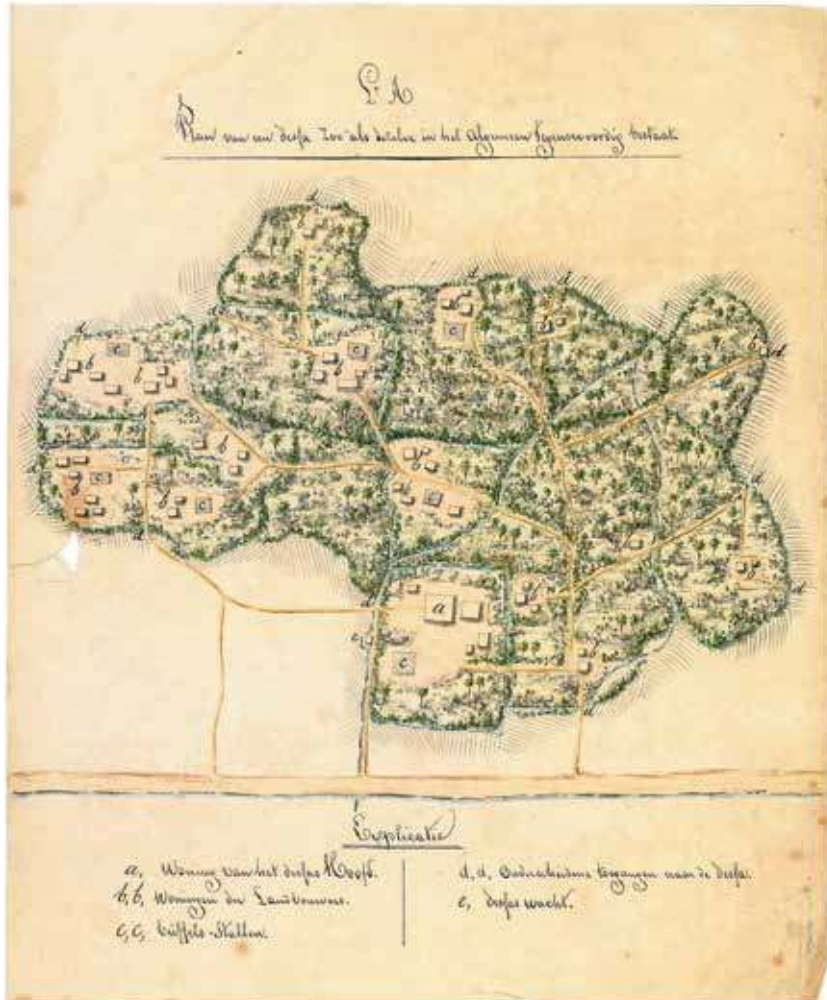 La A
Plan van een dessa zoo als dezelve in het Algemeen tegenwoordig bestaat
Explicatie
a, Woning van het dessas Hoofd.
b, b, Woningen der Landbouwers.
c, c, buffels-Stallen.
d, d, Onderscheidene toegangen naar de dessa.
e, dessas wacht.